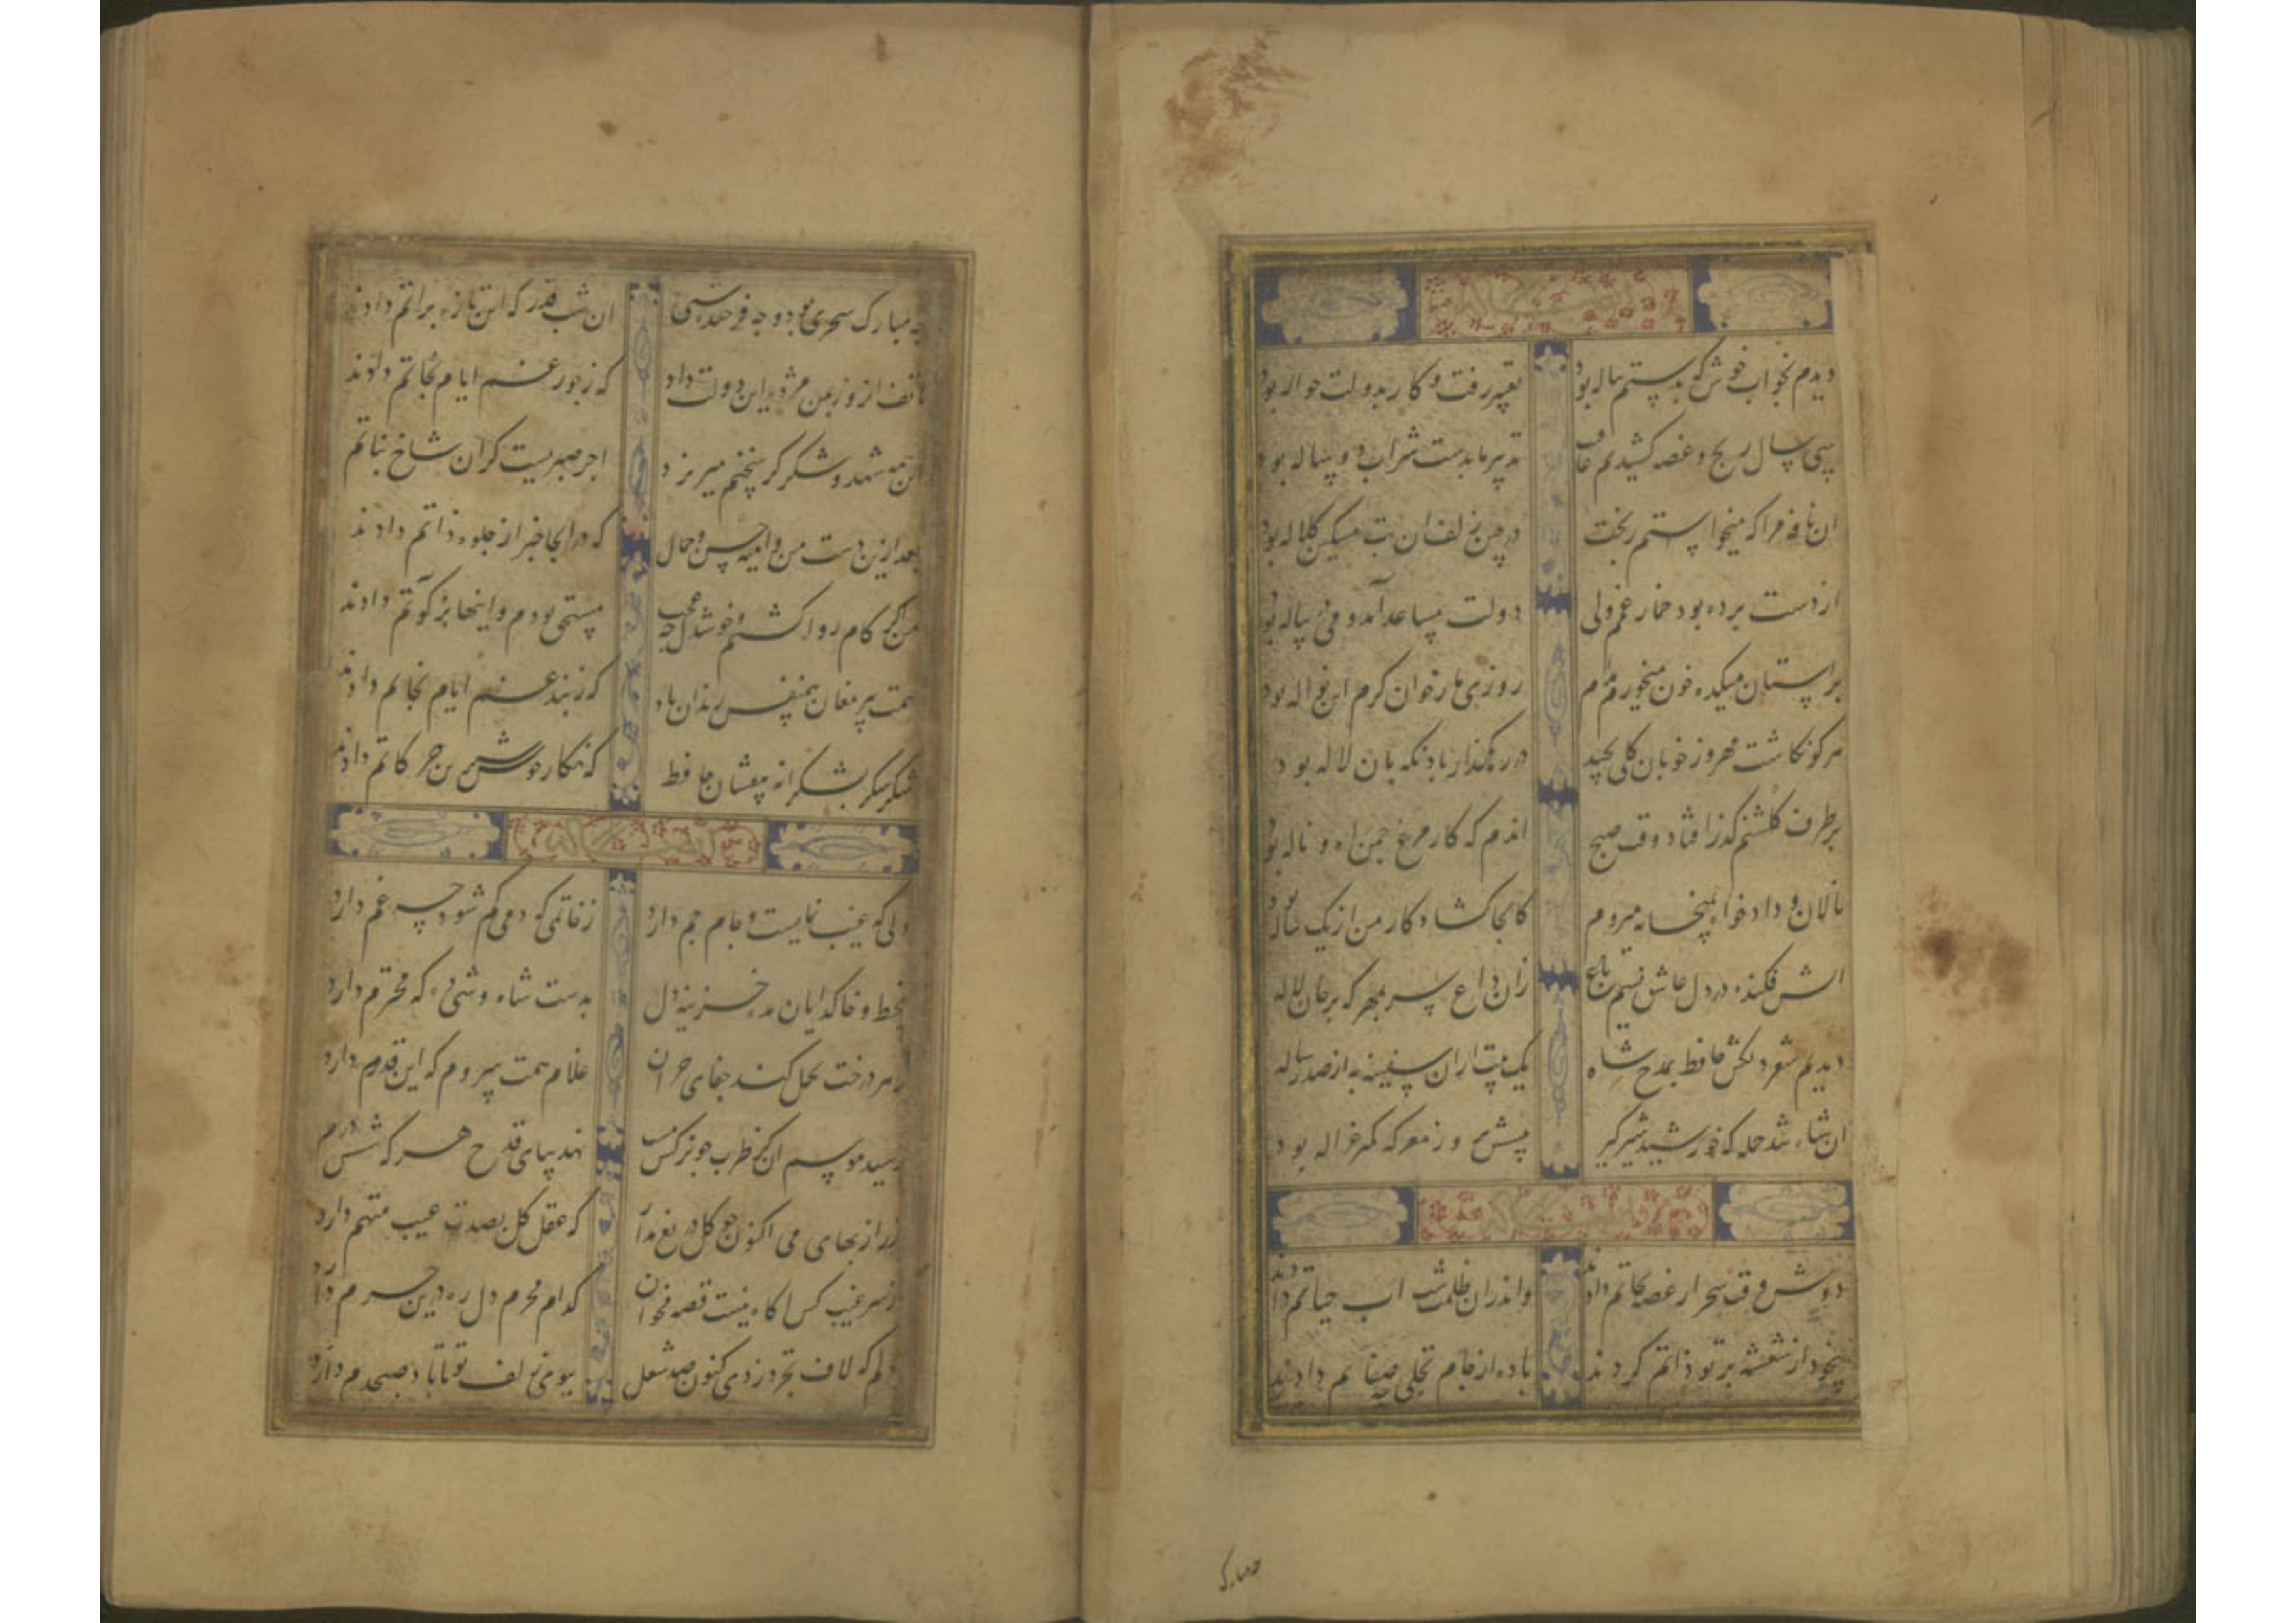 دیدم بخواب خوش که بدستم پیاله بود تعبیر رفت و کار بدولت حواله بود
سی سال رنج و غصه کشیدیم عاقبت تدبیر ما بدست شراب دو ساله بود
ان نافه مرا که میخواستم ز بخت در چین زلف ان بت مشکین کلاله بود
از دست برده بود خمار غم ولی دولت مساعد آمد و می پیاله بود
بر استان میکده خون میخورم مدام روزی ما ز خوان کرم این نواله بود
هر کو نکاشت مهر و ز خوبان کلی نچید در رهکذار باد نکهبان لاله بود
بر طرف کلشنم کذر افتاد وقت صبح اندم که کار مرغ چمن اه و ناله بود
نالان و داد خواه بمیخانه میروم کانجا کشاد کار من از یک پیاله بود
اتش فکنده در دل عاشق نسیم باغ زان داغ سر بمهر که بر جان لاله
دیدیم شعر دلکش حافظ بمدح شاه یک بیت ازان سفینه به از صد رساله
ان شاه تند حمله که خورشید شیر کیر پیشش بروز معرکه کمتر غزاله بود
دوش وقت سحر از غصه نجاتم دادند واندران ظلمت شب اب حیاتم دادند
بیخود از شعشه پرتو ذاتم کردند باده از جام تجلی صفاتم دادند
مبارک
چه مبارک سحری بود و چه فرخنده شبی ان شب قدر که این تازه براتم دادند
هاتف انروز بمن مژده این دولت داد که ز جور غم ایام نجاتم دادند
این همه شهد و شکر کز سخنم میریزد اجر صبریست کزان شاخ نباتم
بعد ازین دست من و اینه حسن و جمال که در انجا خبر از جلوه ذاتم دادند
من اکر کام روا کشتم و خوشدل چه عجب مستحق بودم و اینها بزکوتم دادند
همت پیر مغان همنفس رندان باد که ز بند غم ایام نجاتم دادند
شکر شکر بشکرانه بیفشان حافظ که نکار خوش شیرین حرکاتم دادند
دلی که غیب نمایست و جام جم دارد ز خاتمی که دمی کم شود چه غم دارد
بخط و خال کدایان مده خزینه دل بدست شاه وشی ده که محترم دارد
نه هر درخت تحمل کند جفای خزان غلام همت سروم که این قدم دارد
رسید موسم ان کز طرب چو نرکس مست نهد بپای قدح هر که شش درم
زر از بهای می اکنون چو کل دریغ مدار که عقل کل بصدت عیب متهم دارد
ز سر غیب کس اکاه نیست قصه مخوان کدام محرم دل ره درین حرم دارد
دلم که لاف تجرد زدی کنون صد شغل ببوی زلف تو تا باد صبحدم دارد